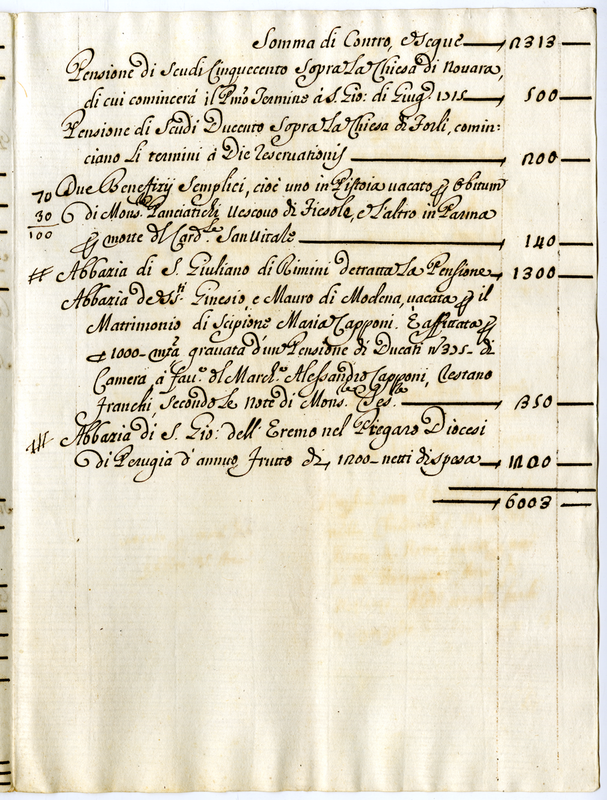 Somma di Contro, e Segue — 2313 —
Pensione di Scudi Cinquecento Sopra La Chiesa di Novara,
di cui comincerà il Pmo Termine à S. Gio: di Giugo. 1715 — 500 —
Pensione di Scudi Ducento Sopra La Chiesa di Forlì, comin:
ciano Li termini à Die reservationis — 200 —
70 Due Benefizij Semplici, cioè uno in Pistoia vacato p obitum
30 di Mons.re Panciatichi Vescovo di Fiesole, e L'altro in Parma
100 p morte del Card.le San Vitale — 140 —
# Abbazia di S. Giuliano di Rimini detratta La Pensione — 1300 —
Abbazia de SS.ti Ginesio, e Mauro di Modena, vacata p il
Matrimonio di Scipione Maria Capponi. È affittata p
1000 – mta gravata d'un Pensione di Ducati di
Camera à fav.e del March.e Alessandro Capponi, restano
franchi, Secondo Le Note di Mons.re — 350 —
# Abbazia di S. Gio: dell'Eremo nel Pregaro Diocesi
di Perugia d'annuo frutto di 1200 – netti di spesa — 1200 —
— 6003 —